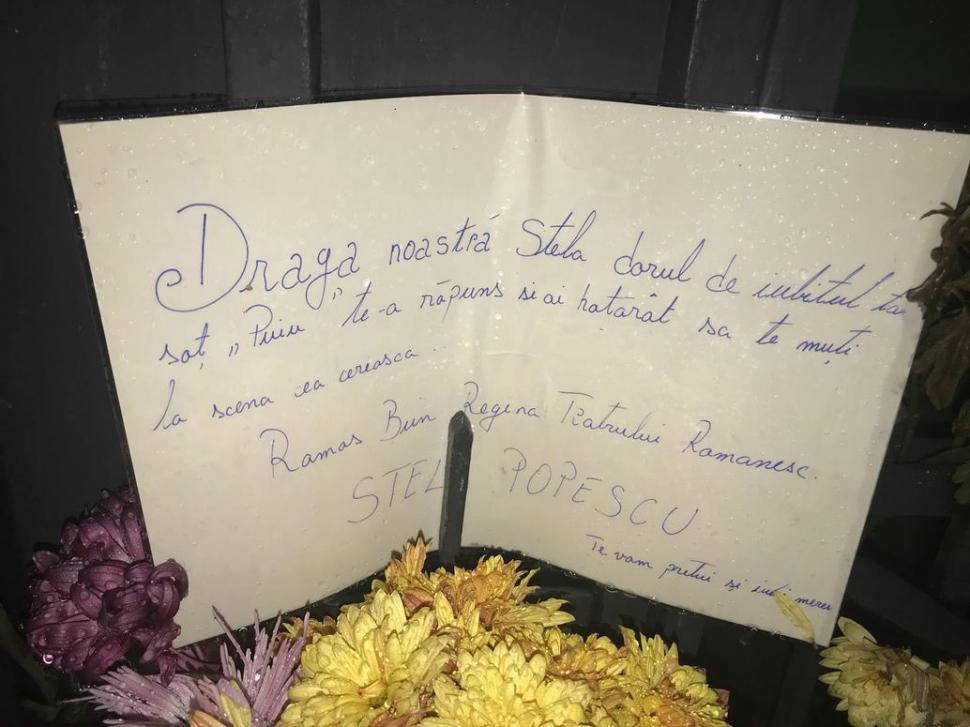 Draga noastră Stela dorul de iubitul tău
soț „Puiu” te-a răpuns si ai hatarât sa te muți
la scena cea cereasca...
Ramas Bun Regina Teatrului Romanesc.
STEL POPESCU
Te vom pretui și iubi mereu